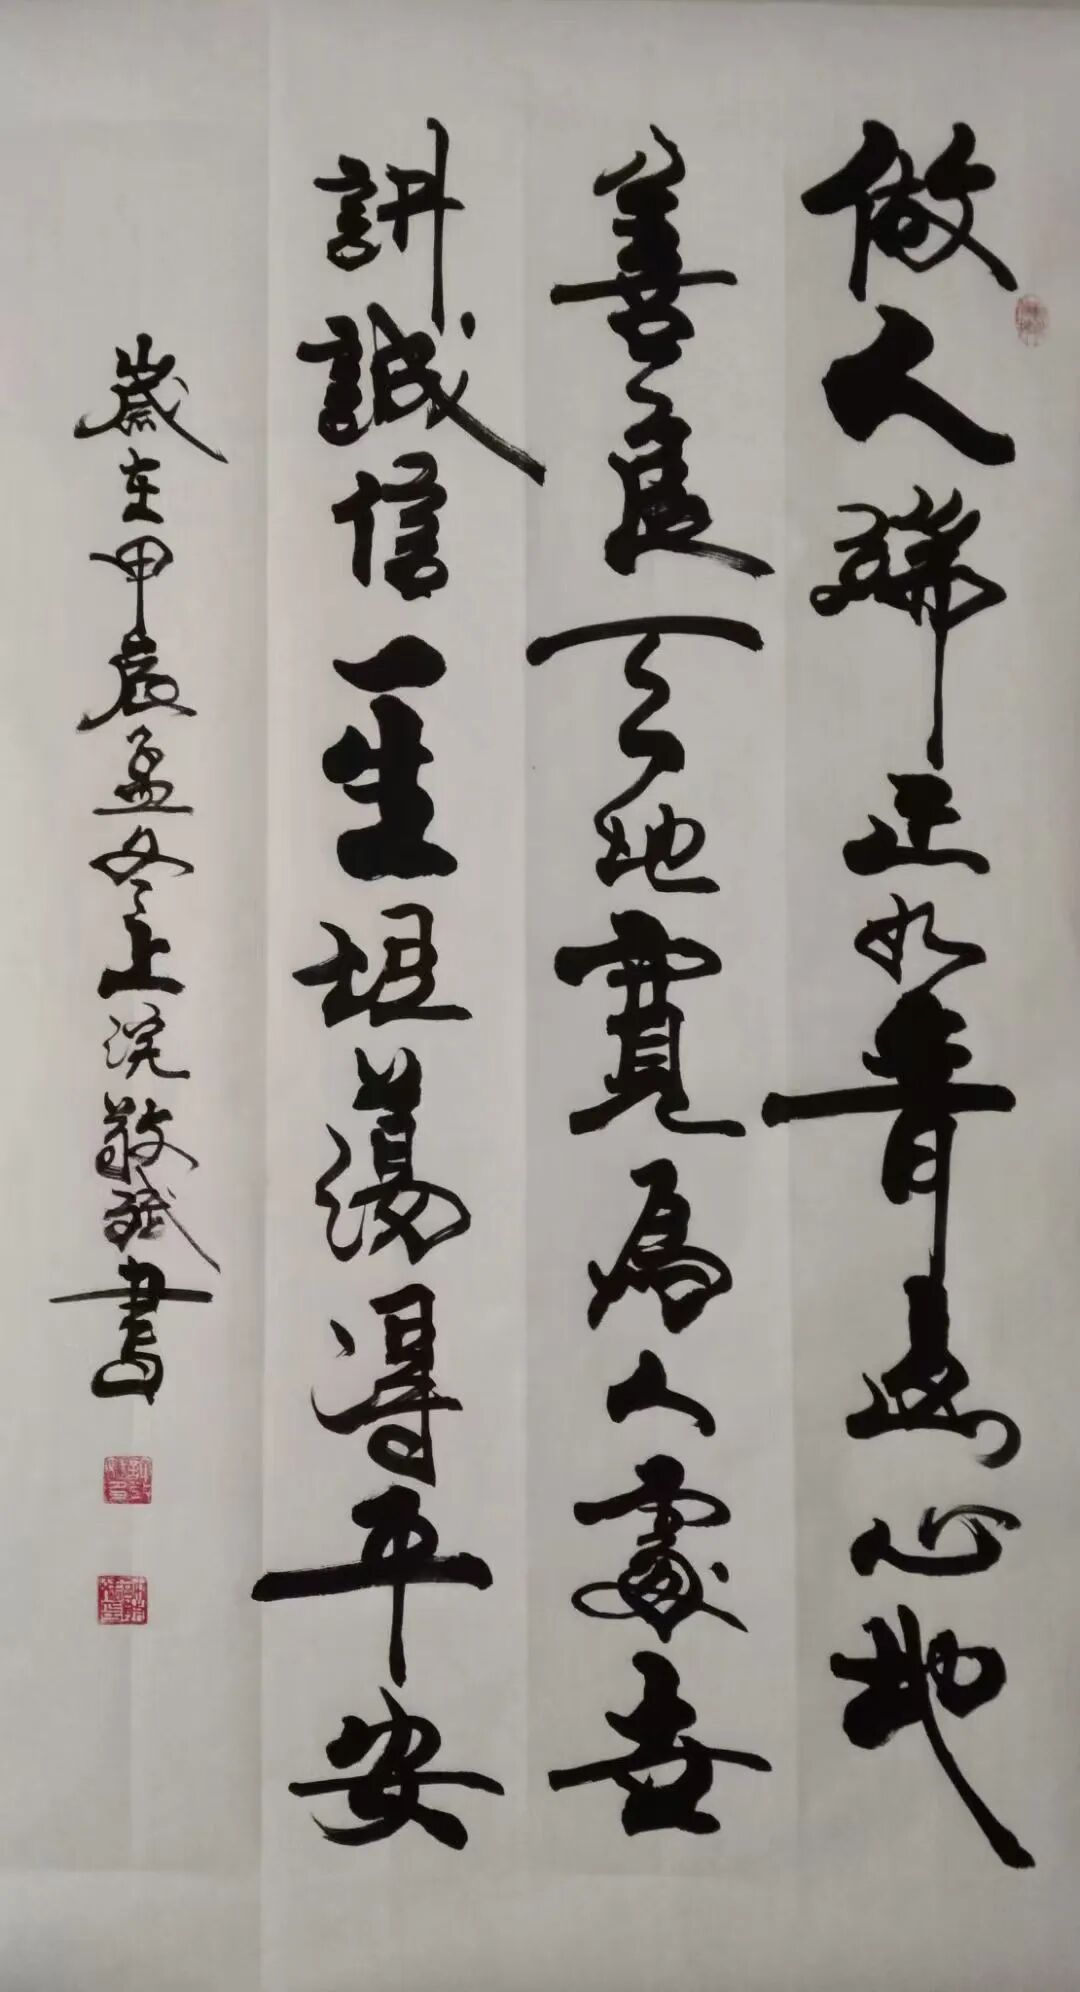 做人端正如青心地
善良天地寬為人處世
講誠信一生坦蕩得平安
歲在甲辰孟冬上浣敬斌書